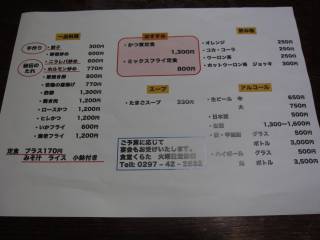 一品料理
手作り
・餃子 300円
・野菜炒め 600円
秘伝のたれ
・ニラレバ炒め 600円
・ホルモン炒め 770円
・700円
・700円
・1,200円
・1,200円
・ロースかつ 1,200円
・とんかつ 1,200円
・いかフライ 600円
・海老フライ 1,200円
定食 プラス170円
みそ汁 ライス 小鉢付き
おすすめ
・かつ煮定食
1,300円
・ミックスフライ定食
800円
スープ
・たまごスープ 330円
ご予算に応じて
宴会もお受けいたします。
食堂くらた
Tell: 0297-42-
飲み物
・オレンジ 250円
・コカ・コーラ 250円
・ウーロン茶 250円
・ホットウーロン茶 ジョッキ 300円
アルコール
・生ビール 中 550円
大 750円
・日本酒 500円
1,300~1,600円
グラス 500円
ボトル 3,000円
・ハイボール グラス 500円
ボトル 3,500円